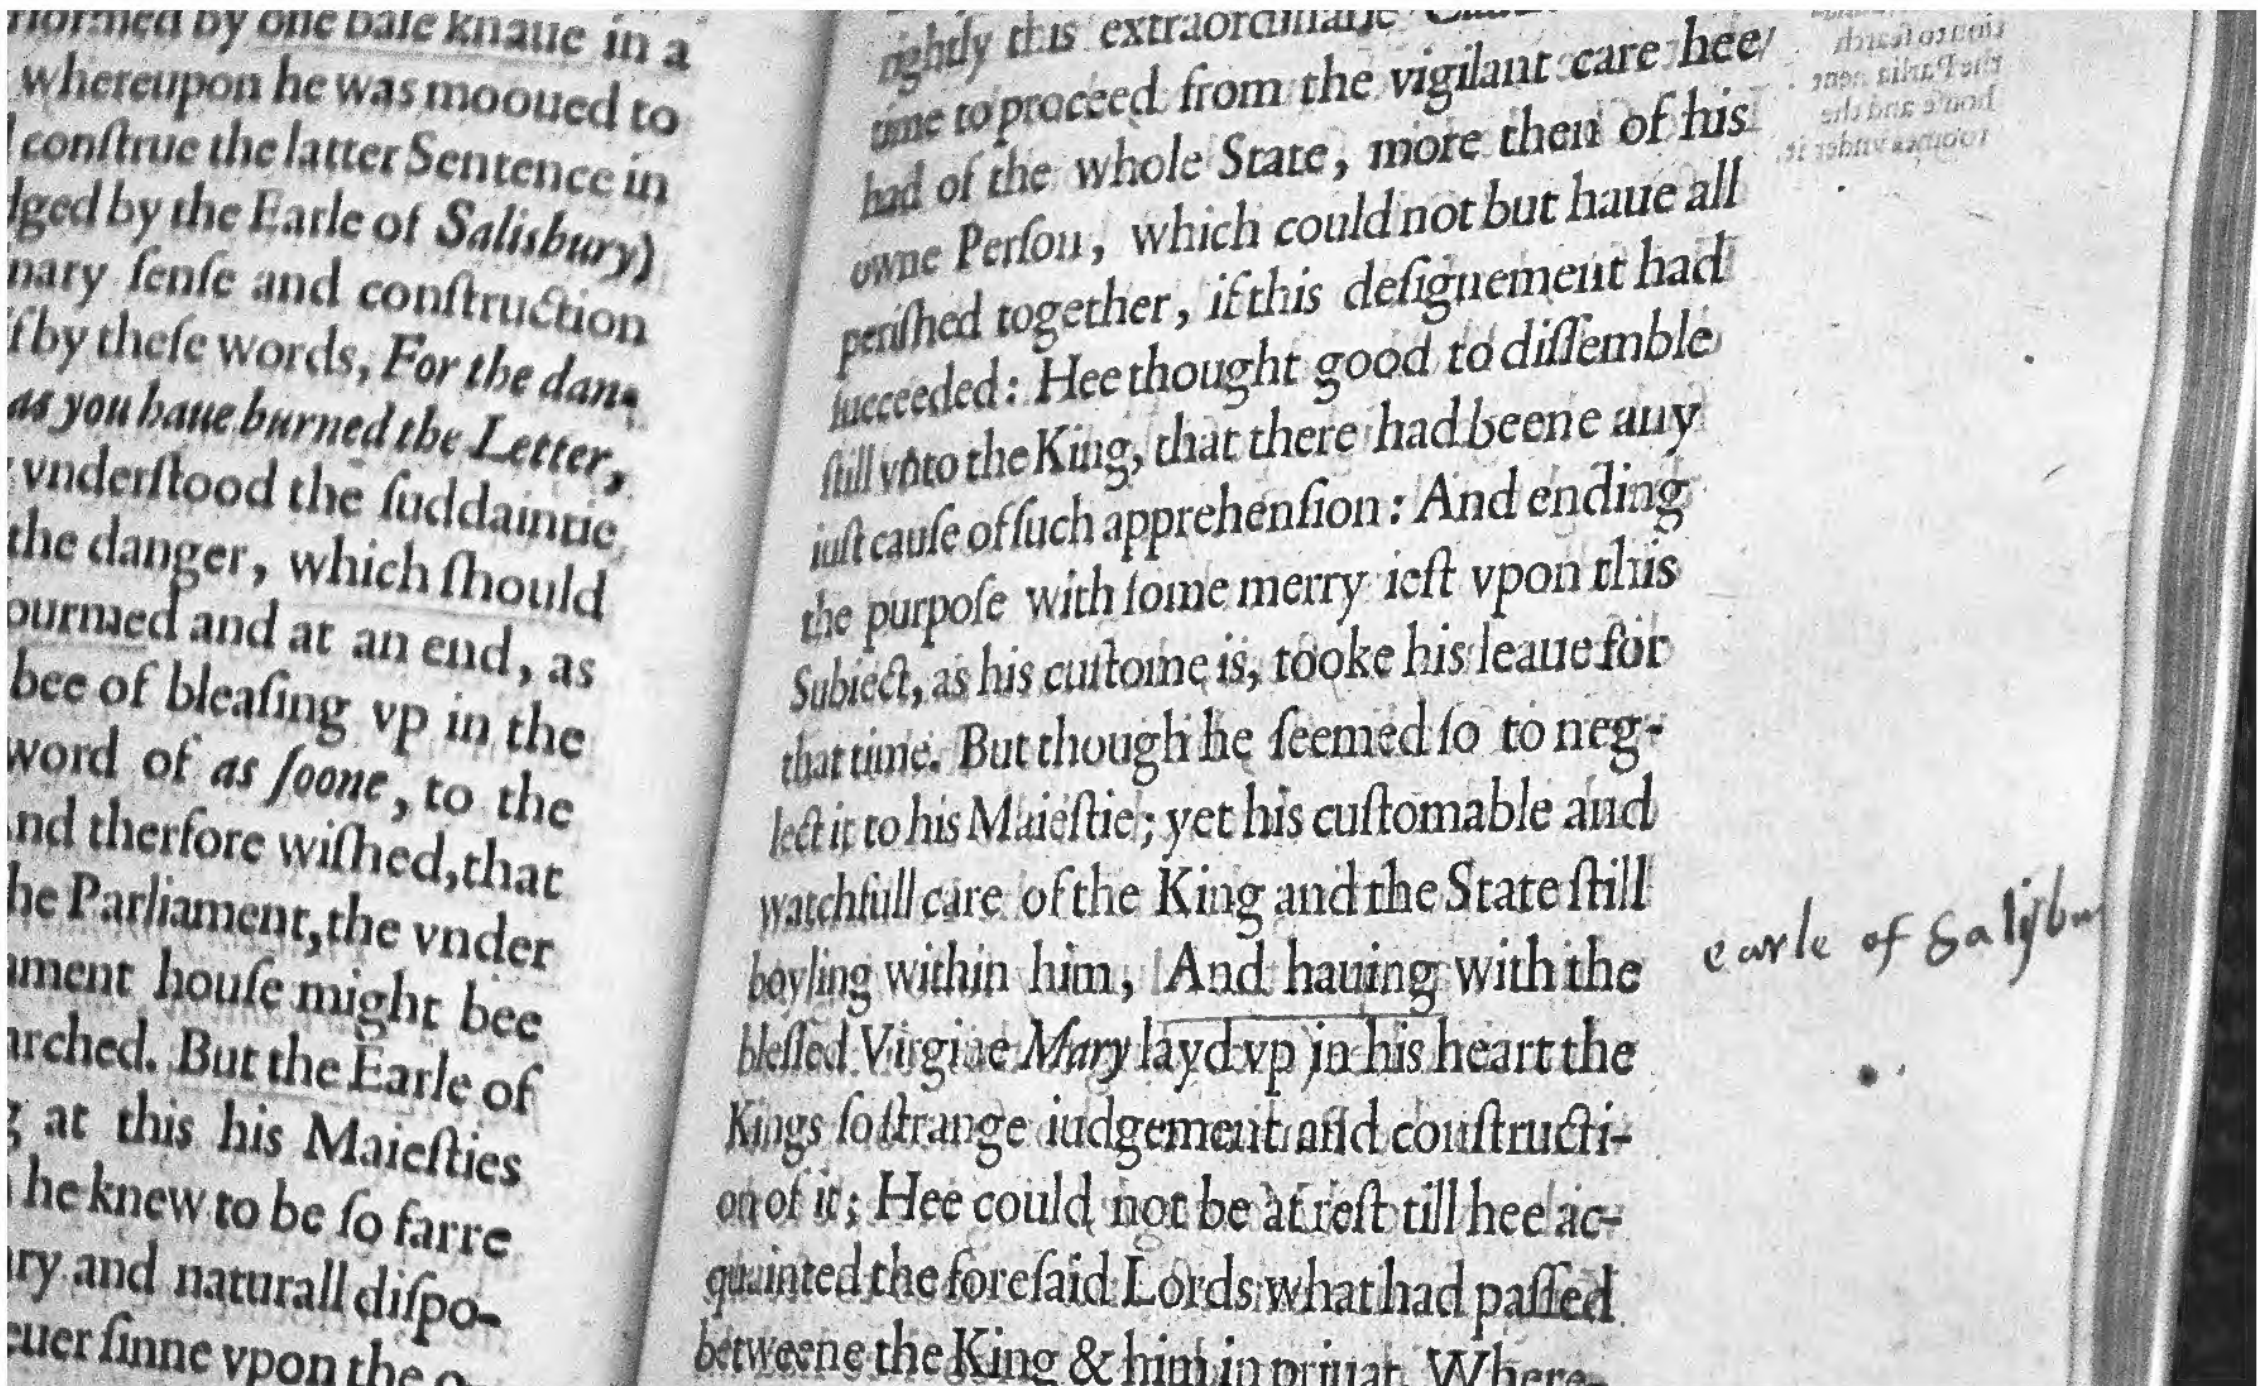 normed by one base knaue in a
whereupon he was mooued to
conſtrue the latter Sentence in
dged by the Earle of Salisbury)
nary ſenſe and conſtruction
if by theſe words, For the dan-
as you haue burned the Letter,
vnderſtood the ſuddaintie
the danger, which ſhould
ourned and at an end, as
bee of bleaſing vp in the
word of as ſoone, to the
nd therfore wiſhed, that
he Parliament, the vnder
ament houſe might bee
arched. But the Earle of
g at this his Maieſties
he knew to be ſo farre
ary and naturall diſpo-
euer ſinne vpon the o-
rightly this extraordinarie
time to proceed from the vigilant care hee
had of the whole State, more then of his
owne Perſon, which could not but haue all
periſhed together, if this deſignement had
ſucceeded: Hee thought good to diſſemble
ſtill vnto the King, that there had beene any
iuſt cauſe of ſuch apprehenſion: And ending
the purpoſe with ſome merry ieſt vpon this
Subiect, as his cuſtome is, tooke his leaue for
that time. But though he ſeemed ſo to neg-
lect it to his Maieſtie; yet his cuſtomable and
watchfull care of the King and the State ſtill
boyling within him, And hauing with the
bleſſed Virgine Mary layd vp in his heart the
Kings ſo ſtrange iudgement and conſtructi-
on of it; Hee could not be at reſt till hee ac-
quainted the foreſaid Lords what had paſſed
betweene the King & him in priuat. Where-
earle of Saliſbu